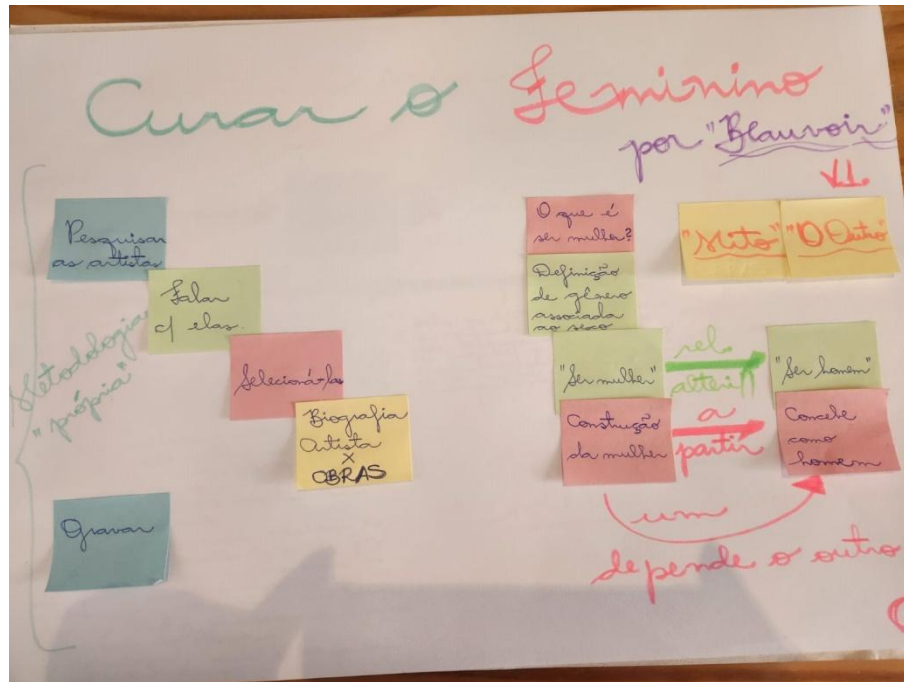 Curar o Feminino
por "Beauvoir"
Metodologia
"própria"
Pesquisar
as artistas
Falar
c/ elas
Selecioná-las
Biografia
Artista
x
OBRAS
Gravar
O que é
ser mulher?
Definição
de gênero
associada
ao sexo
"Mito"
"O Outro"
"Ser mulher"
rel.
alteri
"Ser homem"
Construção
da mulher
a
partir
Concebe
como
homem
um
depende o outro